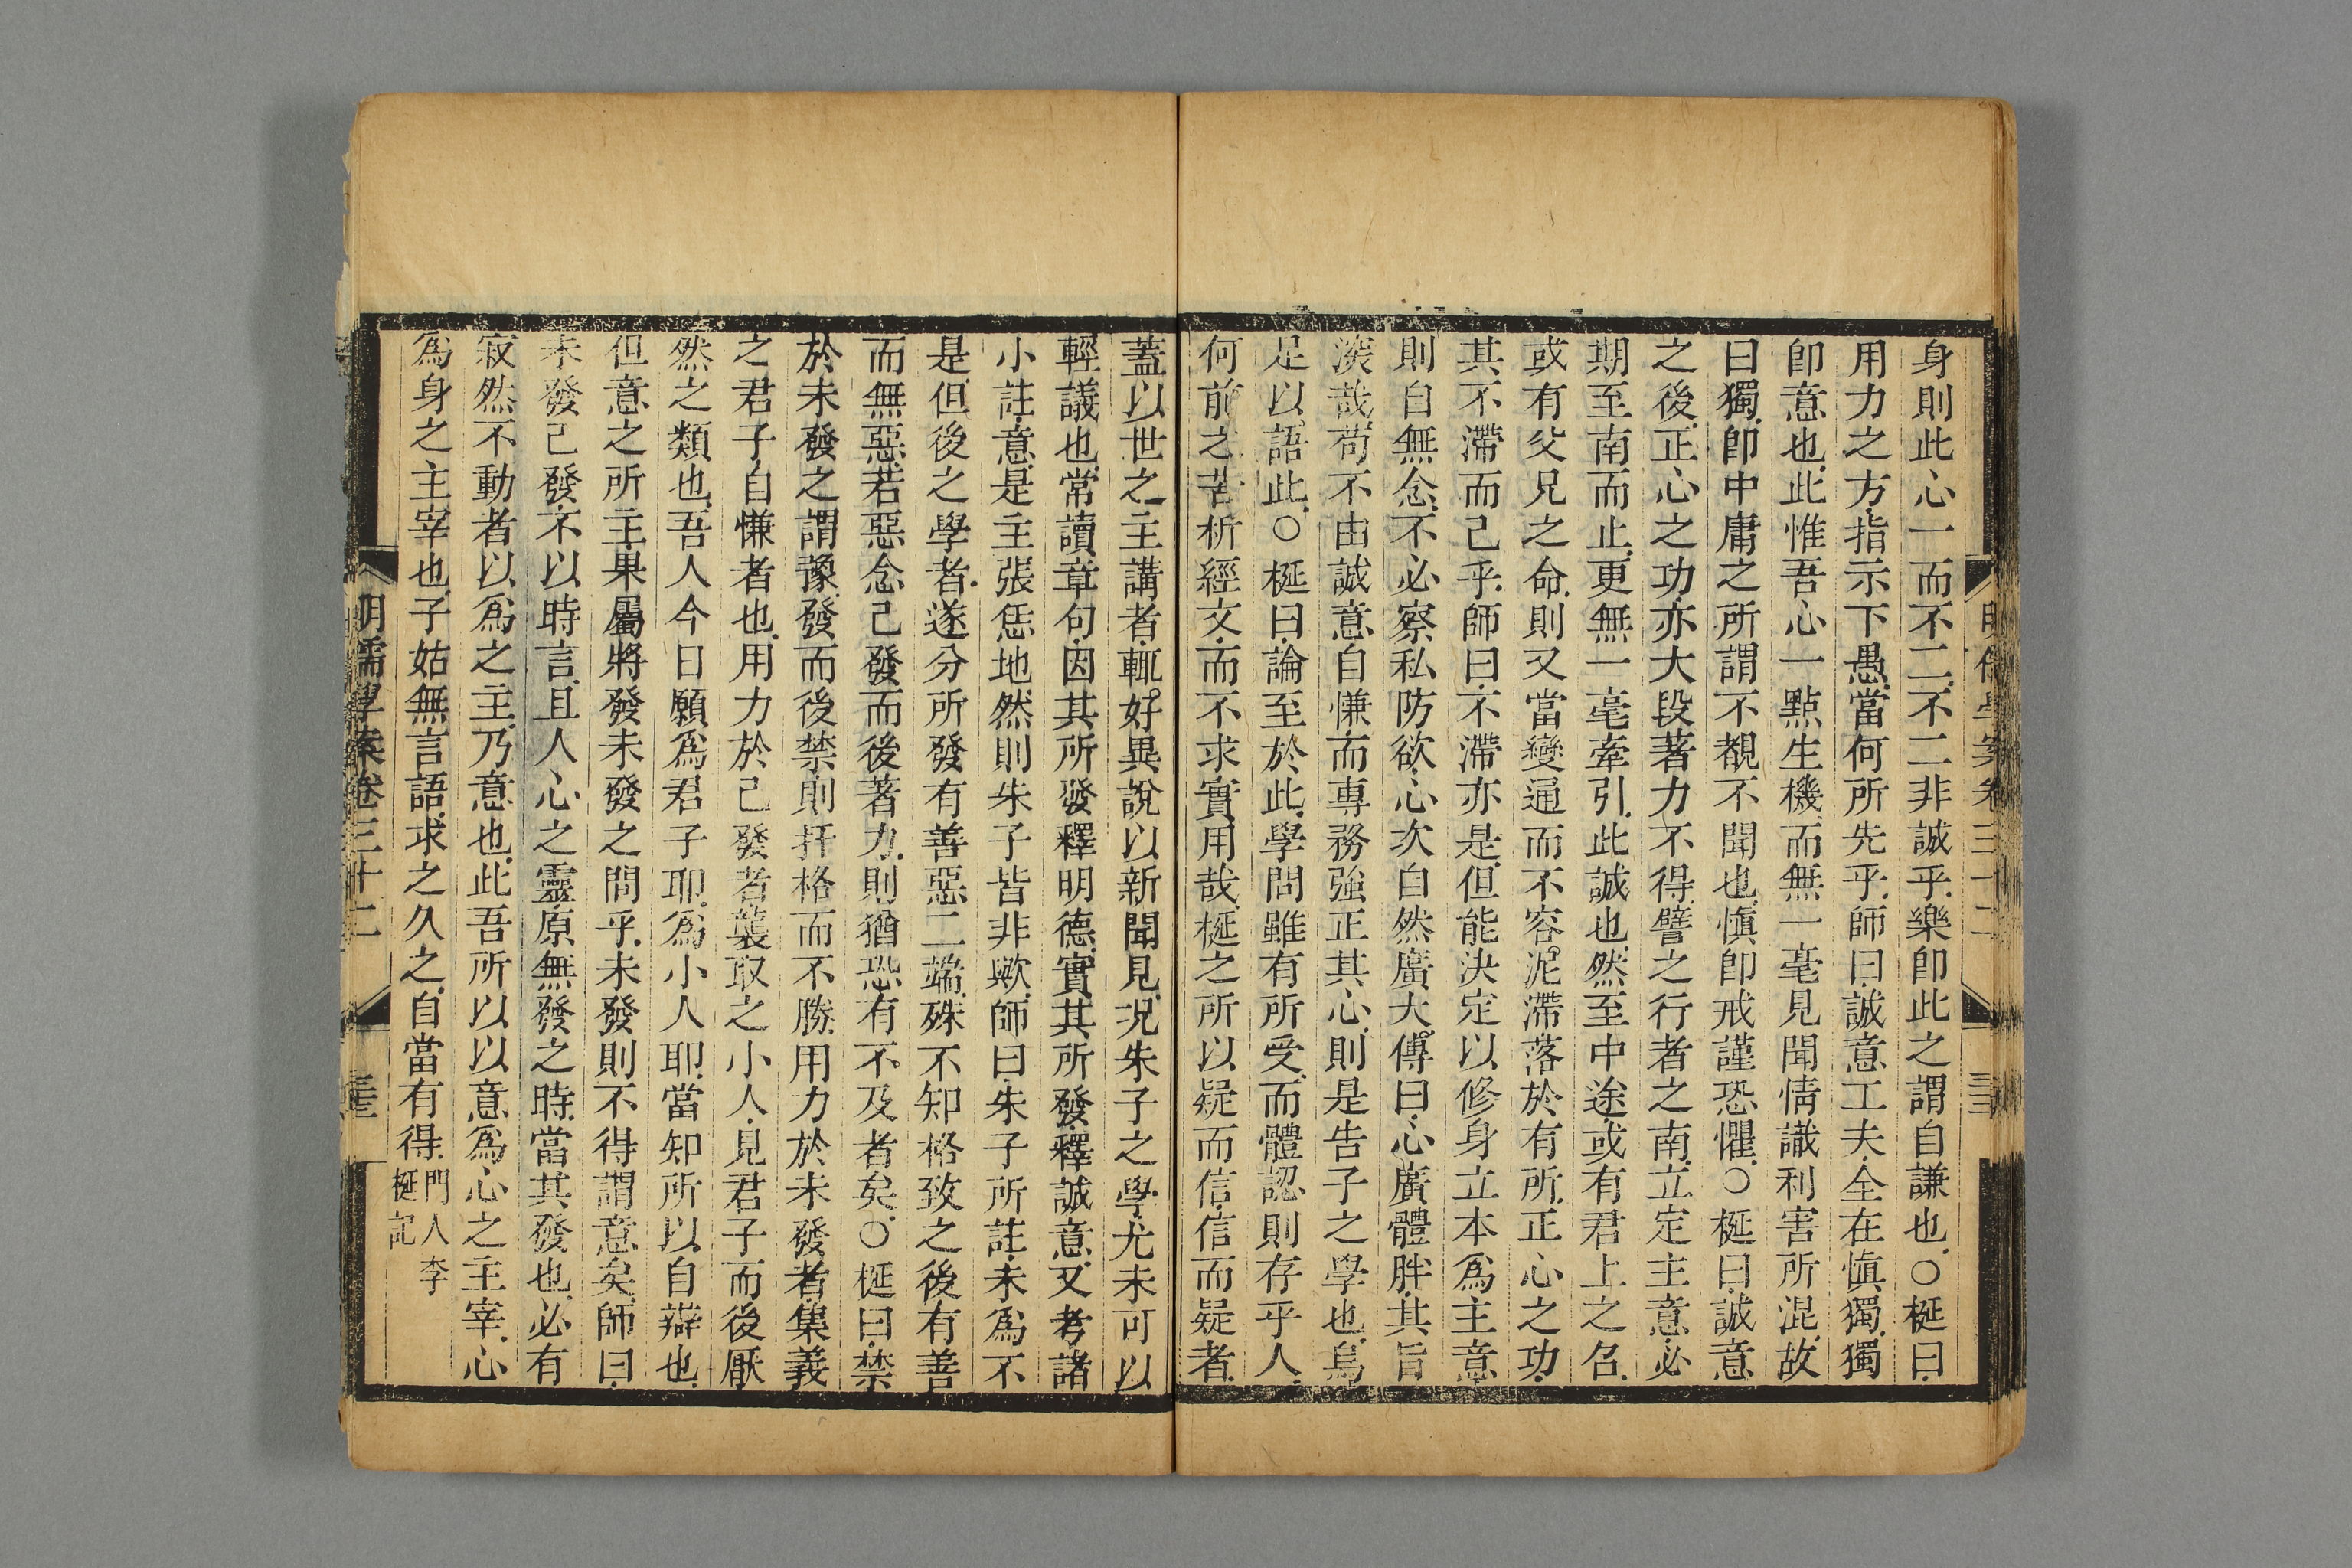 身則此心一而不二不二非誠乎樂卽此之謂自謙也○梴曰
用力之方指示下愚當何所先乎師曰誠意工夫全在愼獨獨
卽意也此惟吾心一點生機而無一毫見聞情識利害所混故
曰獨卽中庸之所謂不覩不聞也愼卽戒謹恐懼○梴曰誠意
之後正心之功亦大段著力不得譬之行者之南立定主意必
期至南而止更無一毫牽引此誠也然至中途或有君上之召
或有父兄之命則又當變通而不容泥滯落於有所正心之功
其不滯而已乎師曰不滯亦是但能決定以修身立本爲主意
則自無念不必察私防欲心次自然廣大傳曰心廣體胖其旨
深哉苟不由誠意自慊而專務強正其心則是告子之學也烏
足以語此○梴曰論至於此學問雖有所受而體認則存乎人
何前之苦析經文而不求實用哉梴之所以疑而信信而疑者
蓋以世之主講者輒好異說以新聞見況朱子之學尤未可以
輕議也常讀章句因其所發釋明德實其所發釋誠意又考諸
小註意是主張恁地然則朱子皆非歟師曰朱子所註未爲不
是但後之學者遂分所發有善惡二端殊不知格致之後有善
而無惡若惡念已發而後著力則猶恐有不及者矣○梴曰禁
於未發之謂豫發而後禁則扞格而不勝用力於未發者集義
之君子自慊者也用力於已發者襲取之小人見君子而後厭
然之類也吾人今日願爲君子耶爲小人耶當知所以自辯也
但意之所主果屬將發未發之問乎未發則不得謂意矣師曰
未發已發不以時言且人心之靈原無發之時當其發也必有
寂然不動者以爲之主乃意也此吾所以以意爲心之主宰心
爲身之主宰也子姑無言語求之久之自當有得門人李
梴記
明儒學案卷三十二